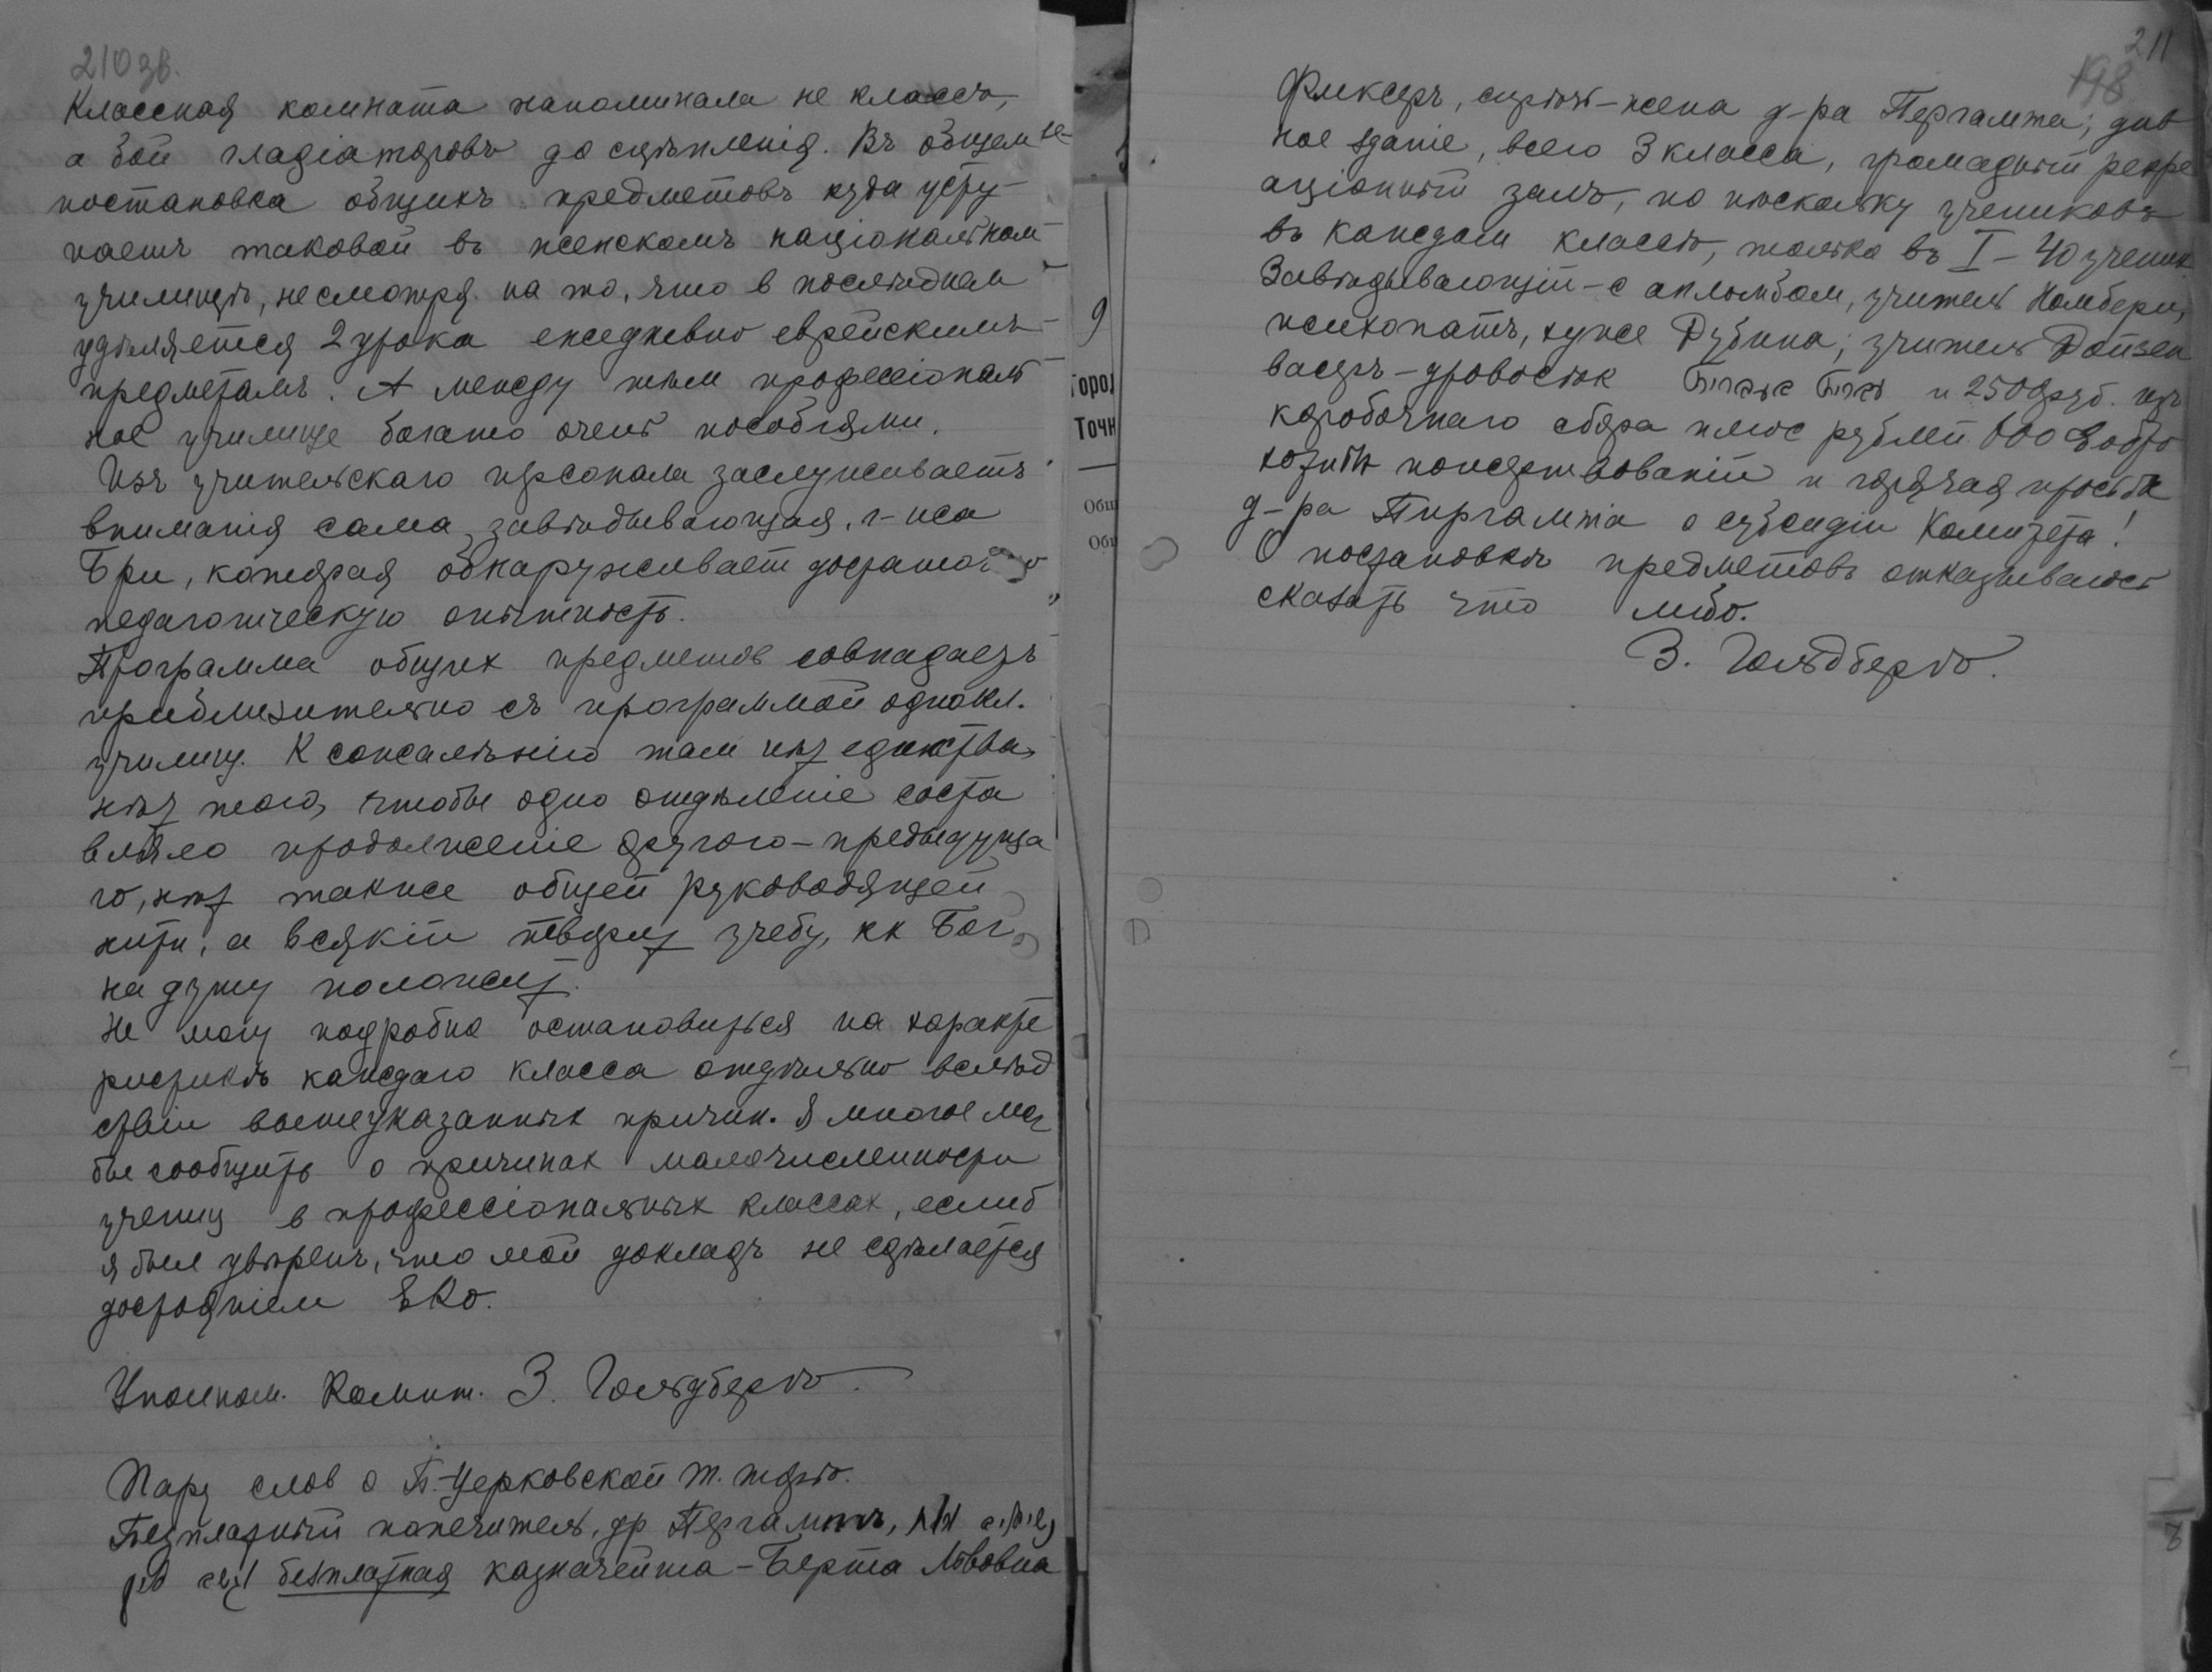 210зв.
Классная комната напоминала не классъ,
а бой гладіаторовъ до сцѣпленія. Въ общемъ
постановка общихъ предметовъ куда усту-
паетъ таковой въ женскомъ національном
училищѣ, несмотря на то, что в послѣднем
удѣляется 2 урока ежедневно еврейскимъ
предметамъ. А между тѣм професіональ
ное училище богато очень пособіями.
Изъ учительскаго персонала заслуживаетъ
вниманія сама завѣдывающая, г-жа
Бри, которая обнаруживает
педагогическую опытность.
Программа общих предметов совпадаетъ
приблизительно съ программой однокл.
училищ. К сожалѣнію там нѣт единства,
нѣт того, чтобы одно отдѣленіе соста
вляло продолженіе другого - предыдуща
го, нѣт также общей руководящей
нити, а всякій творит учебу, кк Бог
на душу положит.
Не могу подробно остановиться на характе
ристикѣ каждаго класса отдѣльно вслѣд
ствіи вышеуказанных причин. Я многое мог
бы сообщить о причинах малочисленности
учениц в професcіональных классах, еслиб
я был увѣрен, что мой докладъ не сдѣлается
достояніем ЕКО.
Уполном. Комит. З. Гольдбергъ.
Пару слов о Б.-Церковской Т. торѣ.
Безплатный попечитель, др Пергаментъ,
безплатная казначейша - Берта Львовна
211
198
Фиксеръ, - жена д-ра Пергамента; див
ное зданіе, всего 3 класса, громадный рекре
аціонный залъ, по нѣскольку учениковъ
въ каждом классѣ, только въ I - 40 ученик
Завѣдывающій - с апломбом, учитель Номберг,
психопатъ, хуже Дубина; учитель Дойзен
васеръ - дровосѣк и 2500 руб. изъ
коробочнаго сбора плюс рублей 600 добро
хотных пожертвованій и горячая просьба
д-ра Пергамента о субсидіи Комитета!
О постановкѣ предметовъ отказываюсь
сказать что либо.
З. Гольдбергъ.
9
Город
Точн
Общ
Общ
8